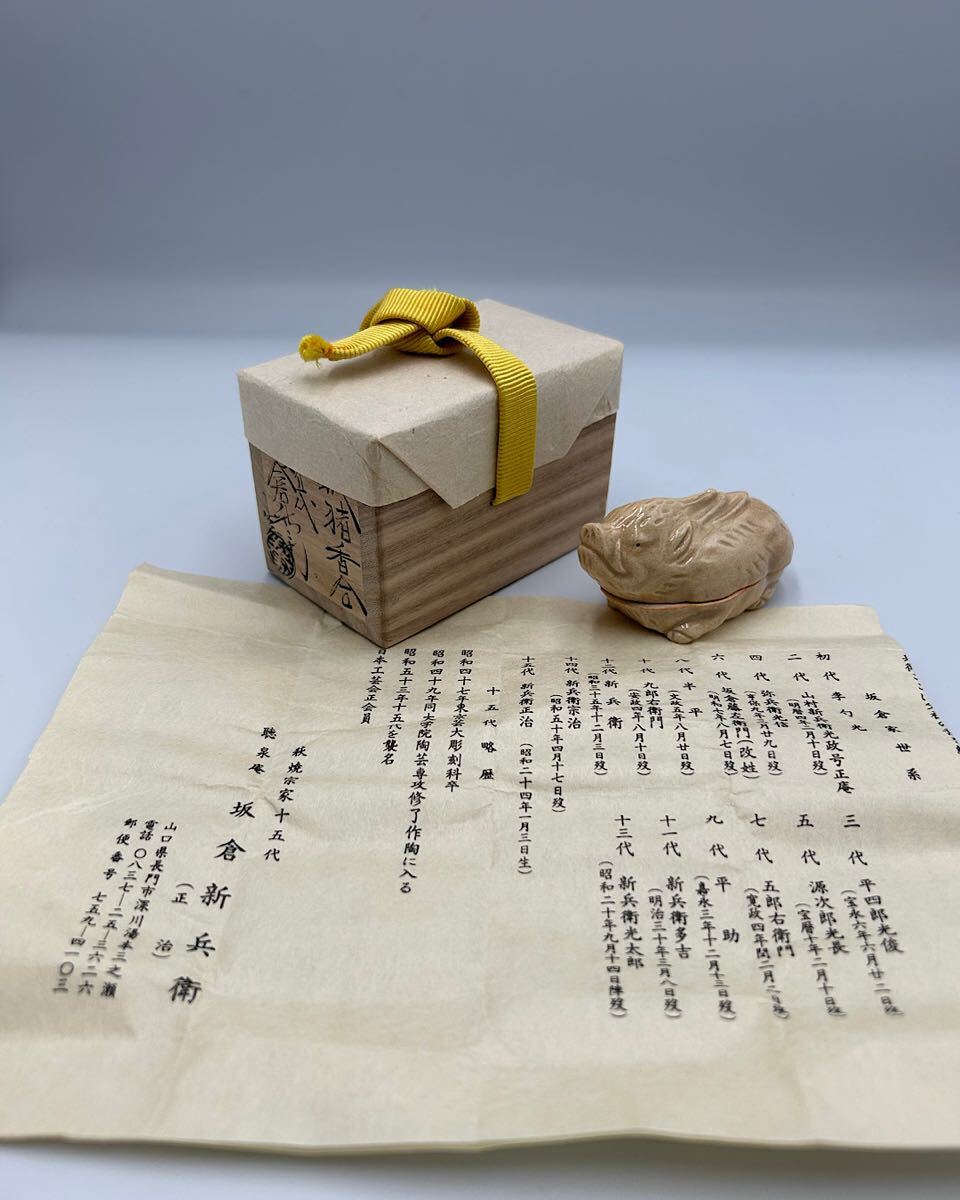 坂倉家世系
初代 李勺光
二代 山村新兵衛光政号正庵
(明暦四年二月十日歿)
三代 平四郎光俊
(宝永六年六月廿二日歿)
四代 弥兵衛光信
(享保九年三月廿九日歿)
五代 源次郎光長
(宝暦十年二月十日歿)
六代 坂倉藤左衛門(改姓)
(明和七年八月七日歿)
七代 五郎右衛門
(寛政四年閏二月二日歿)
八代 半平
(文政五年八月廿日歿)
九代 平助
(嘉永三年十二月十三日歿)
十代 九郎右衛門
(安政四年八月十日歿)
十一代 新兵衛多吉
(明治三十年三月八日歿)
十二代 新兵衛
(昭和三十五年十二月三日歿)
十三代 新兵衛光太郎
(昭和二十年九月十四日陣歿)
十四代 新兵衛宗治
(昭和五十年四月十七日歿)
十五代 新兵衛正治 (昭和二十四年一月三日生)
十五代略歴
昭和四十七年東京芸大彫刻科卒
昭和四十九年同大学院陶芸専攻修了作陶に入る
昭和五十三年十五代を襲名
日本工芸会正会員
萩焼宗家十五代
聴泉庵 坂倉新兵衛
(正治)
山口県長門市深川湯本三之瀬
電話〇八三七-二五-三六二六
郵便番号 七五九-四一〇三
猪香合